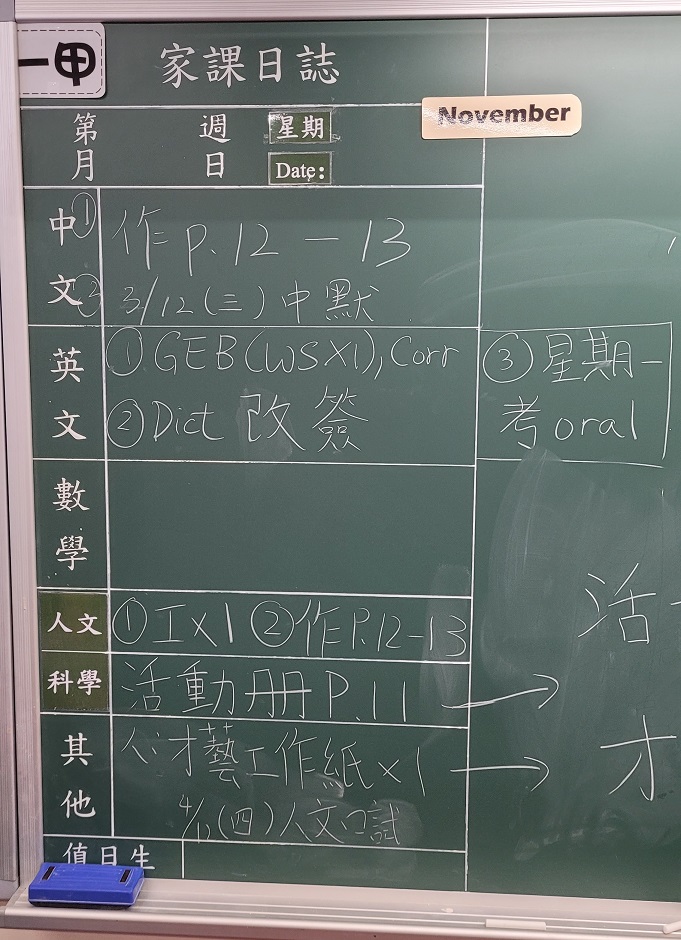 一甲
家課日誌
November
第 週 星期
月 日 Date:
中文
① 作 P.12 – 13
② 3/12 (三) 中默
英文
① GEB (WS×1), Corr
② Dict 改簽
③ 星期一
考 oral
數學
人文
① 工×1 ② 作 P.12-13
科學
活動冊 P.11 →
活
其他
才藝工作紙×1 →
才
(四) 人文口試
值日生